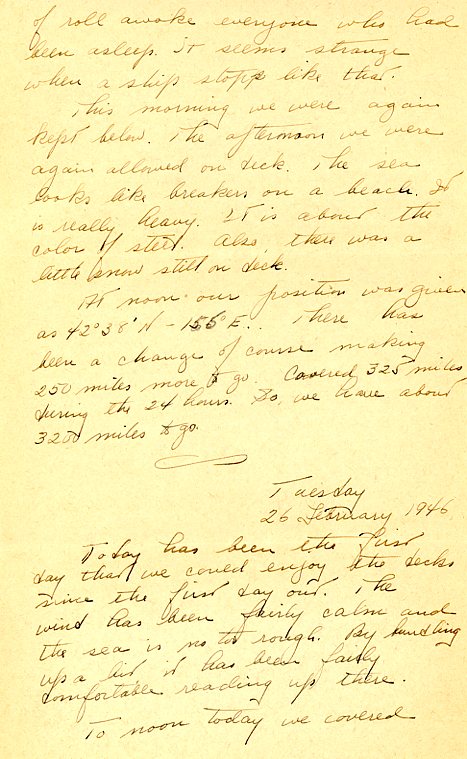 of roll awoke everyone who had
been asleep. It seems strange
when a ship stops like that.
This morning we were again
kept below. The afternoon we were
again allowed on deck. The sea
looks like breakers on a beach. It
is really heavy. It is about the
color of steel. Also, there was a
little snow still on deck.
At noon our position was given
as 42°38'N - 155°E. There has
been a change of course making
250 miles more to go. Covered 325 miles
during the 24 hours. So, we have about
3200 miles to go.
Tuesday
26 February 1946
Today has been the first
day that we could enjoy the decks
since the first day out. The
wind has been fairly calm and
the sea is not rough. By bundling
up a bit it has been fairly
comfortable reading up there.
To noon today we covered